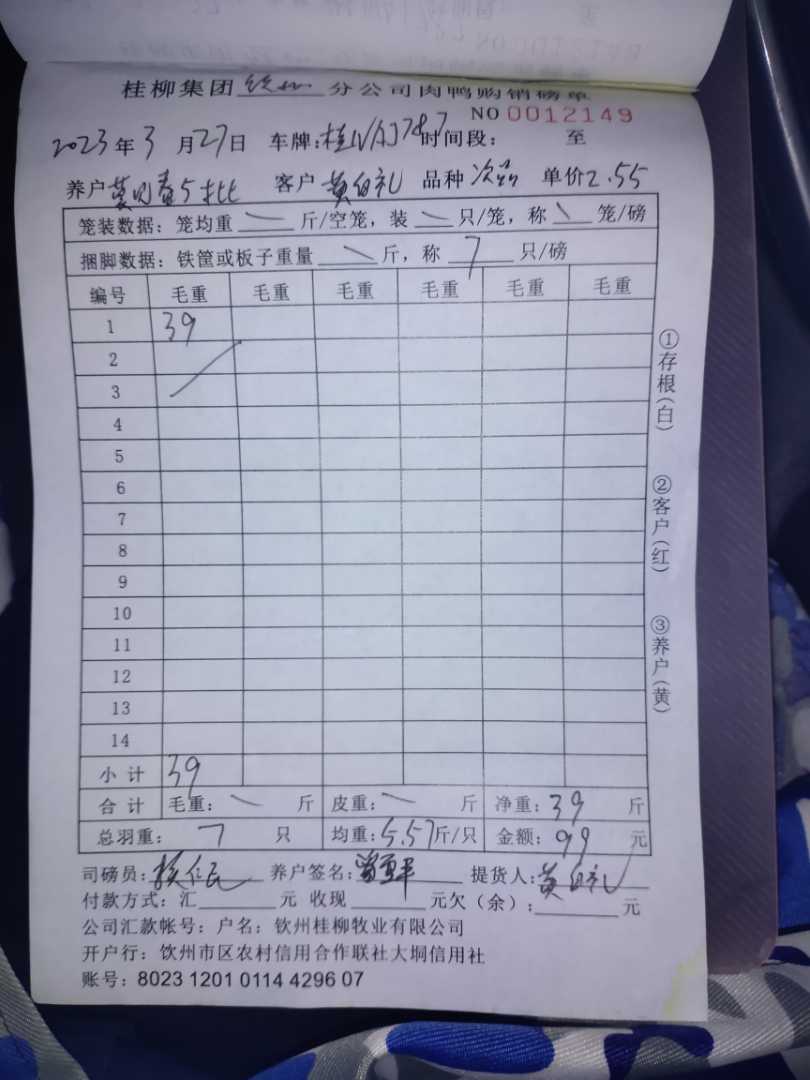 桂柳集团 钦州 分公司肉鸭购销磅单
NO 0012149
2023年3月27日 车牌: 时间段: 至
养户 客户 黄白礼 品种 次品 单价2.55
笼装数据: 笼均重 斤/空笼, 装 只/笼, 称 笼/磅
捆脚数据: 铁筐或板子重量 斤, 称 7 只/磅
编号 毛重 毛重 毛重 毛重 毛重 毛重
1 39
2
3
4
5
6
7
8
9
10
11
12
13
14
小计 39
合计 毛重: 斤 皮重: 斤 净重: 39 斤
总羽重: 7 只 均重: 5.57斤/只 金额: 99 元
司磅员: 养户签名: 提货人: 黄白礼
付款方式: 汇 元 收现 元欠(余): 元
公司汇款帐号: 户名: 钦州桂柳牧业有限公司
开户行: 饮州市区农村信用合作联社大垌信用社
账号: 8023 1201 0114 4296 07
①存根(白) ②客户(红) ③养户(黄)